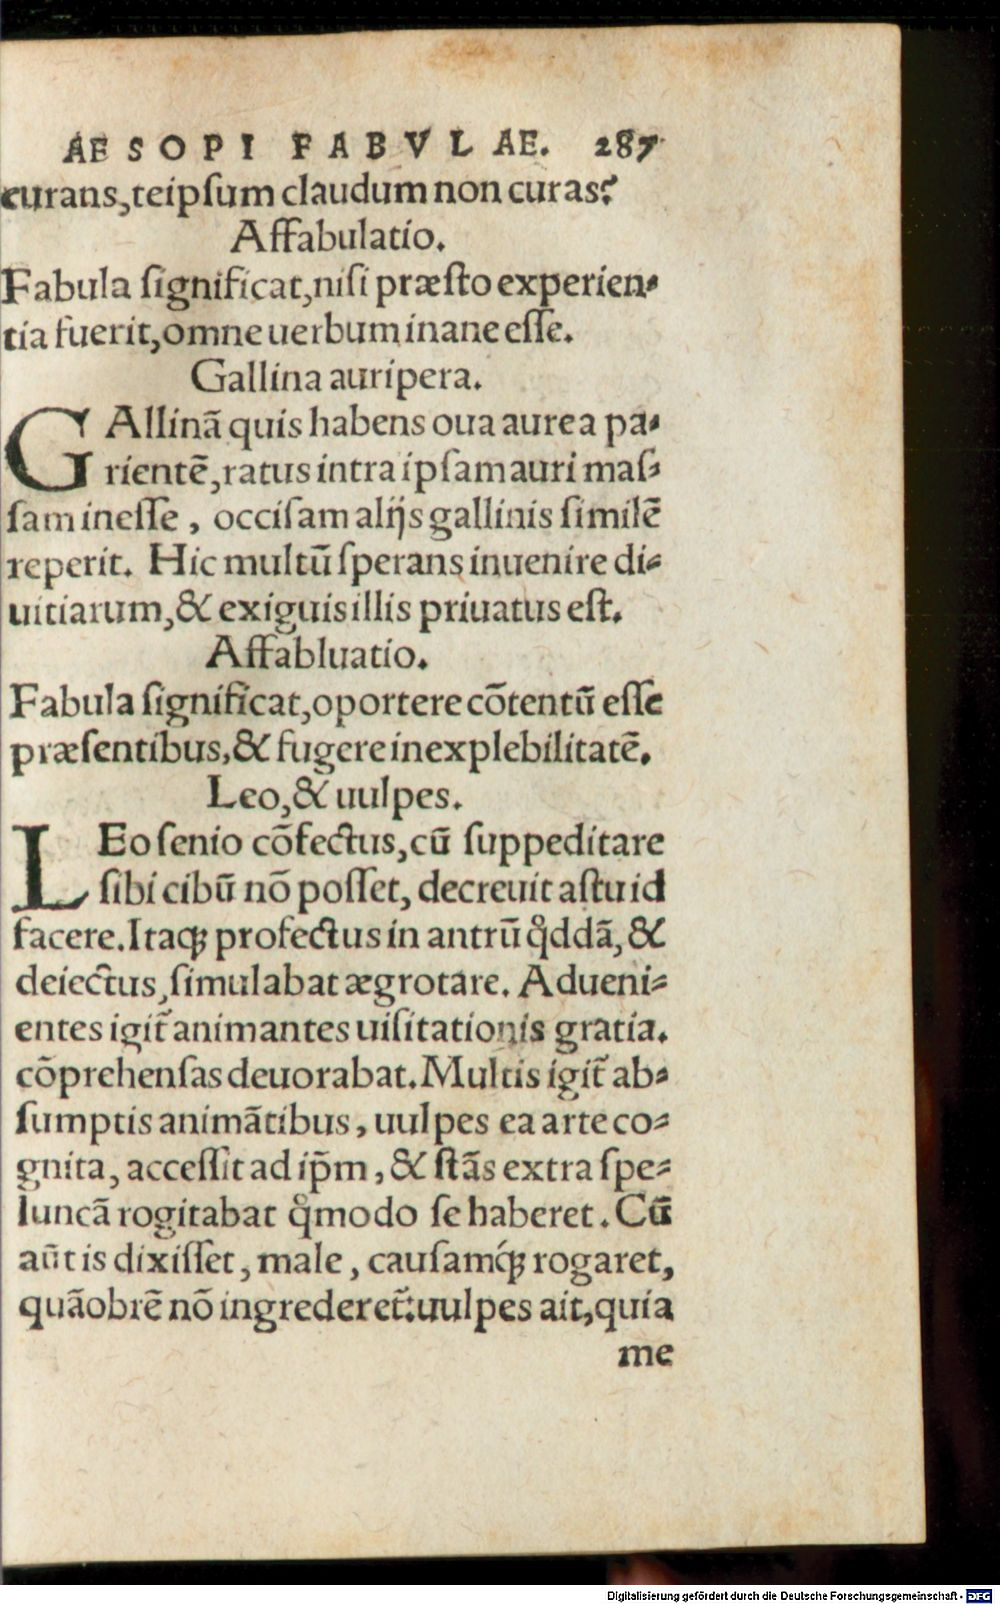 AESOPI FABVLAE. 287
curans,teipſum claudum non curas?
Affabulatio.
Fabula ſignificat,niſi præſto experien-
tia fuerit,omne uerbum inane eſſe.
Gallina auripera.
GAllinã quis habens oua aurea pa-
rientẽ,ratus intra ipſam auri maſ-
ſam ineſſe, occiſam alijs gallinis ſimilẽ
reperit. Hic multũ ſperans inuenire di-
uitiarum,& exiguis illis priuatus eſt.
Affabluatio.
Fabula ſignificat,oportere cõtentũ eſſe
præſentibus,& fugere inexplebilitatẽ.
Leo,& uulpes.
LEo ſenio cõfectus,cũ ſuppeditare
ſibi cibũ nõ poſſet, decreuit aſtu id
facere.Itaqꝫ profectus in antrũ qͦddã, &
deiectus,ſimulabat ægrotare. Adueni-
entes igit᷑ animantes uiſitationis gratia.
cõprehenſas deuorabat.Multis igit᷑ ab-
ſumptis animãtibus, uulpes ea arte co-
gnita, acceſſit ad ip̃m, & ſtãs extra ſpe-
luncã rogitabat qͦmodo ſe haberet. Cũ
aũt is dixiſſet, male, cauſamqꝫ́ rogaret,
quãobrẽ nõ ingrederet᷑:uulpes ait,quia
me
Digitalisierung gefördert durch die Deutsche Forschungsgemeinschaft - DFG